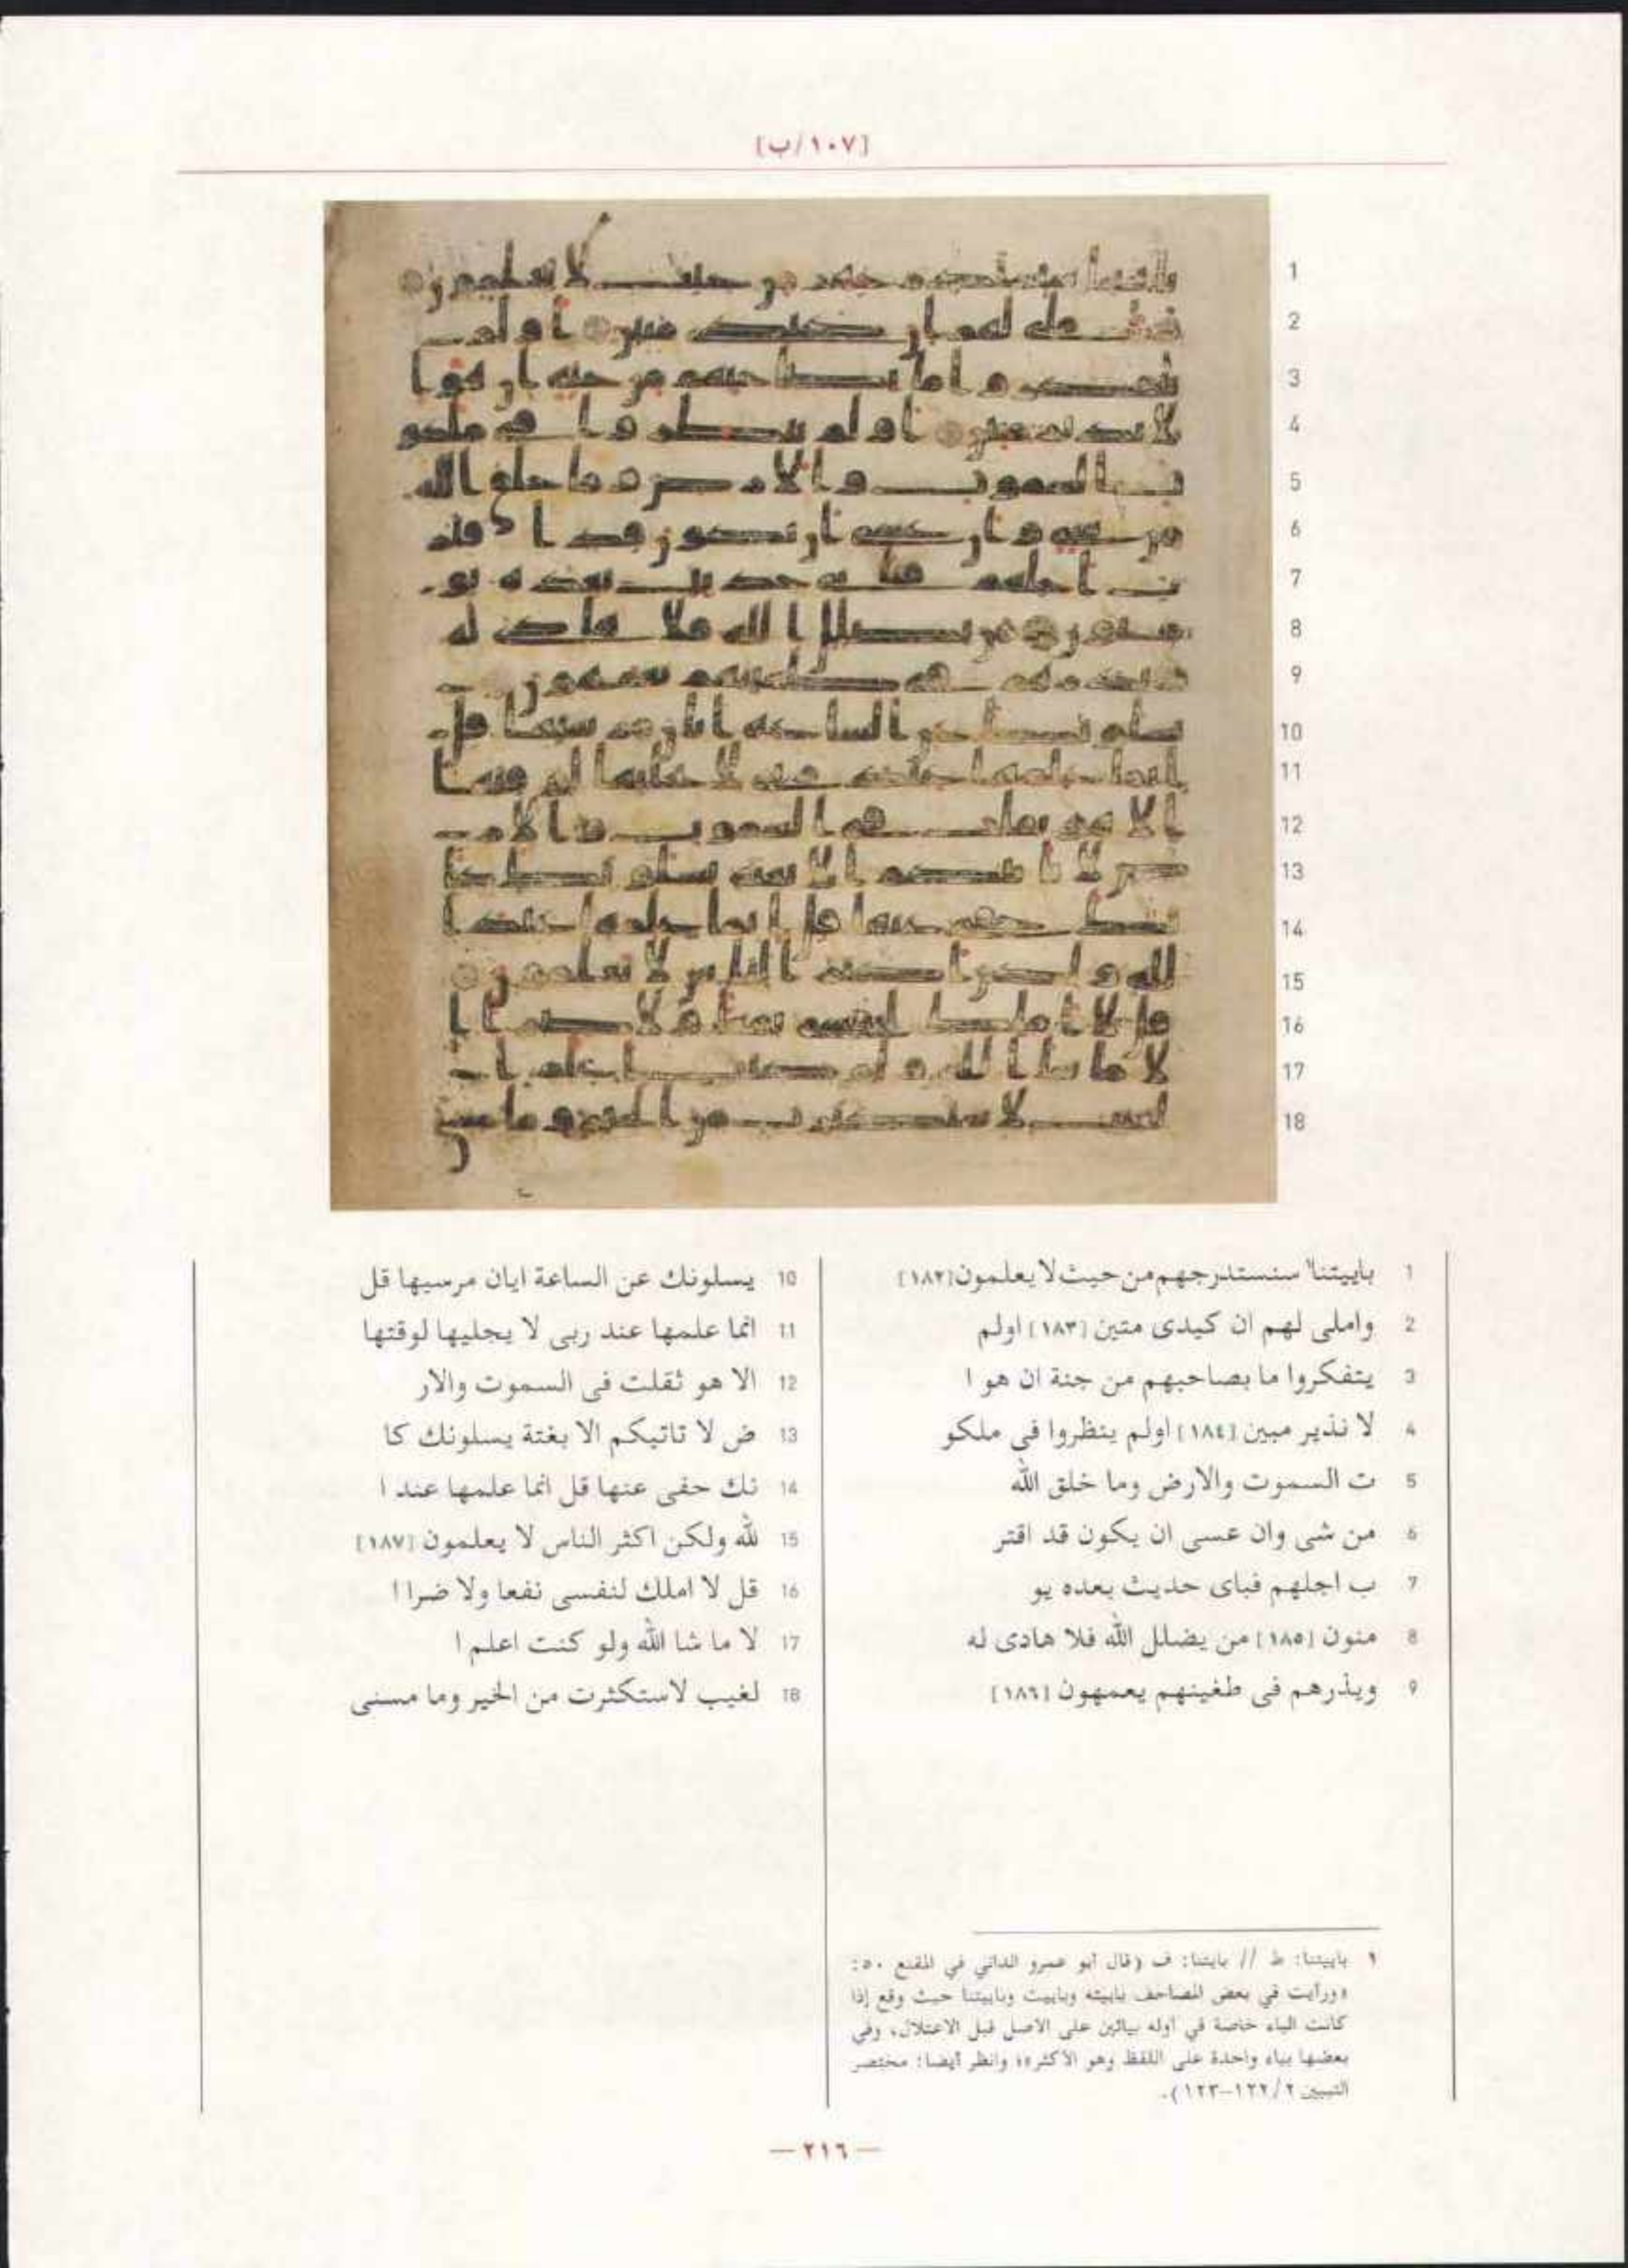 [١٠٧/ب]
1 باييتنا١ سنستدرجهم من حيث لا يعلمون [١٨٢]
2 واملى لهم ان كيدى متين [١٨٣] اولم
3 يتفكروا ما بصاحبهم من جنة ان هو ا
4 لا نذير مبين [١٨٤] اولم ينظروا فى ملكو
5 ت السموت والارض وما خلق الله
6 من شى وان عسى ان يكون قد اقتر
7 ب اجلهم فباى حديث بعده يو
8 منون [١٨٥] من يضلل الله فلا هادى له
9 ويذرهم فى طغينهم يعمهون [١٨٦]
10 يسلونك عن الساعة ايان مرسيها قل
11 انما علمها عند ربى لا يجليها لوقتها
12 الا هو ثقلت فى السموت والار
13 ض لا تاتيكم الا بغتة يسلونك كا
14 نك حفى عنها قل انما علمها عند ا
15 لله ولكن اكثر الناس لا يعلمون [١٨٧]
16 قل لا املك لنفسى نفعا ولا ضرا ا
17 لا ما شا الله ولو كنت اعلم ا
18 لغيب لاستكثرت من الخير وما مسنى
١ باييتنا: ط // بايتنا: ف (قال أبو عمرو الداني في المقنع ٥٠:
«ورأيت في بعض المصاحف باييته وباييت وباييتنا حيث وقع إذا
كانت الباء خاصة في أوله بيائين على الاصل قبل الاعتلال، وفي
بعضها بياء واحدة على اللفظ وهو الأكثر»؛ وانظر أيضا: مختصر
التبيين ٢/ ١٢٢-١٢٣).
— ٢١٦ —